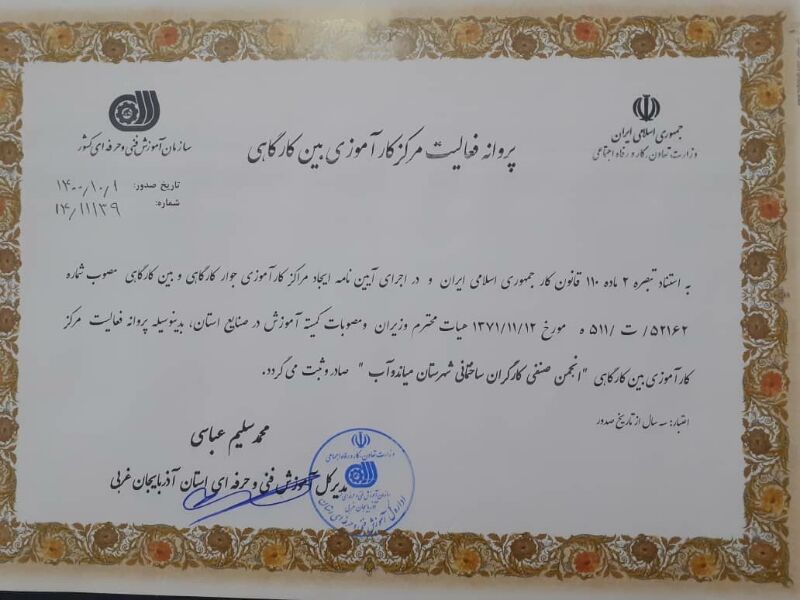 جمهوری اسلامی ایران
وزارت تعاون، کار و رفاه اجتماعی
پروانه فعالیت مرکز کارآموزی بین کارگاهی
سازمان آموزش فنی و حرفه ای کشور
تاریخ صدور: ۱۴۰۰/۱۰/۱
شماره: ۱۴/۱۱۱۳۹
به استناد تبصره ۲ ماده ۱۱۰ قانون کار جمهوری اسلامی ایران و در اجرای آیین نامه ایجاد مراکز کارآموزی جوار کارگاهی و بین کارگاهی مصوب شماره
۵۲۱۶۲/ ت /۵۱۱ ه مورخ ۱۳۷۱/۱۱/۱۲ هیات محترم وزیران ومصوبات کمیته آموزش در صنایع استان، بدینوسیله پروانه فعالیت مرکز
کارآموزی بین کارگاهی "انجمن صنفی کارگران ساختمانی شهرستان میاندوآب" صادر وثبت می گردد.
اعتبار: سه سال از تاریخ صدور
محمد سلیم عباسی
مدیرکل آموزش فنی و حرفه ای استان آذربایجان غربی
وزارت تعاون، کار و رفاه اجتماعی
سازمان آموزش فنی و حرفه ای
آذربایجان غربی